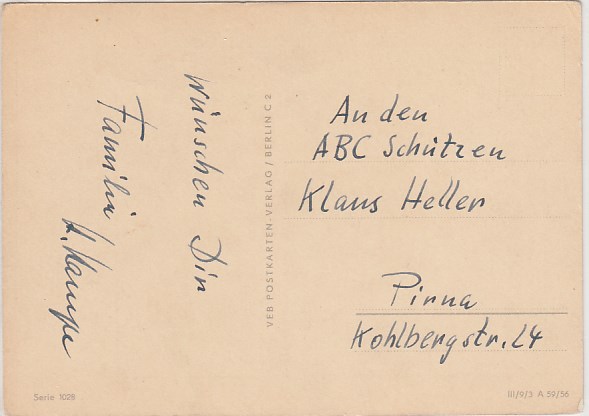 Wünschen Dir
Familie
H. Kampe
VEB POSTKARTEN-VERLAG / BERLIN C 2
An den
ABC Schützen
Klaus Heller
Pirna
Kohlbergstr. 24
Serie 1028
III/9/3 A 59/56